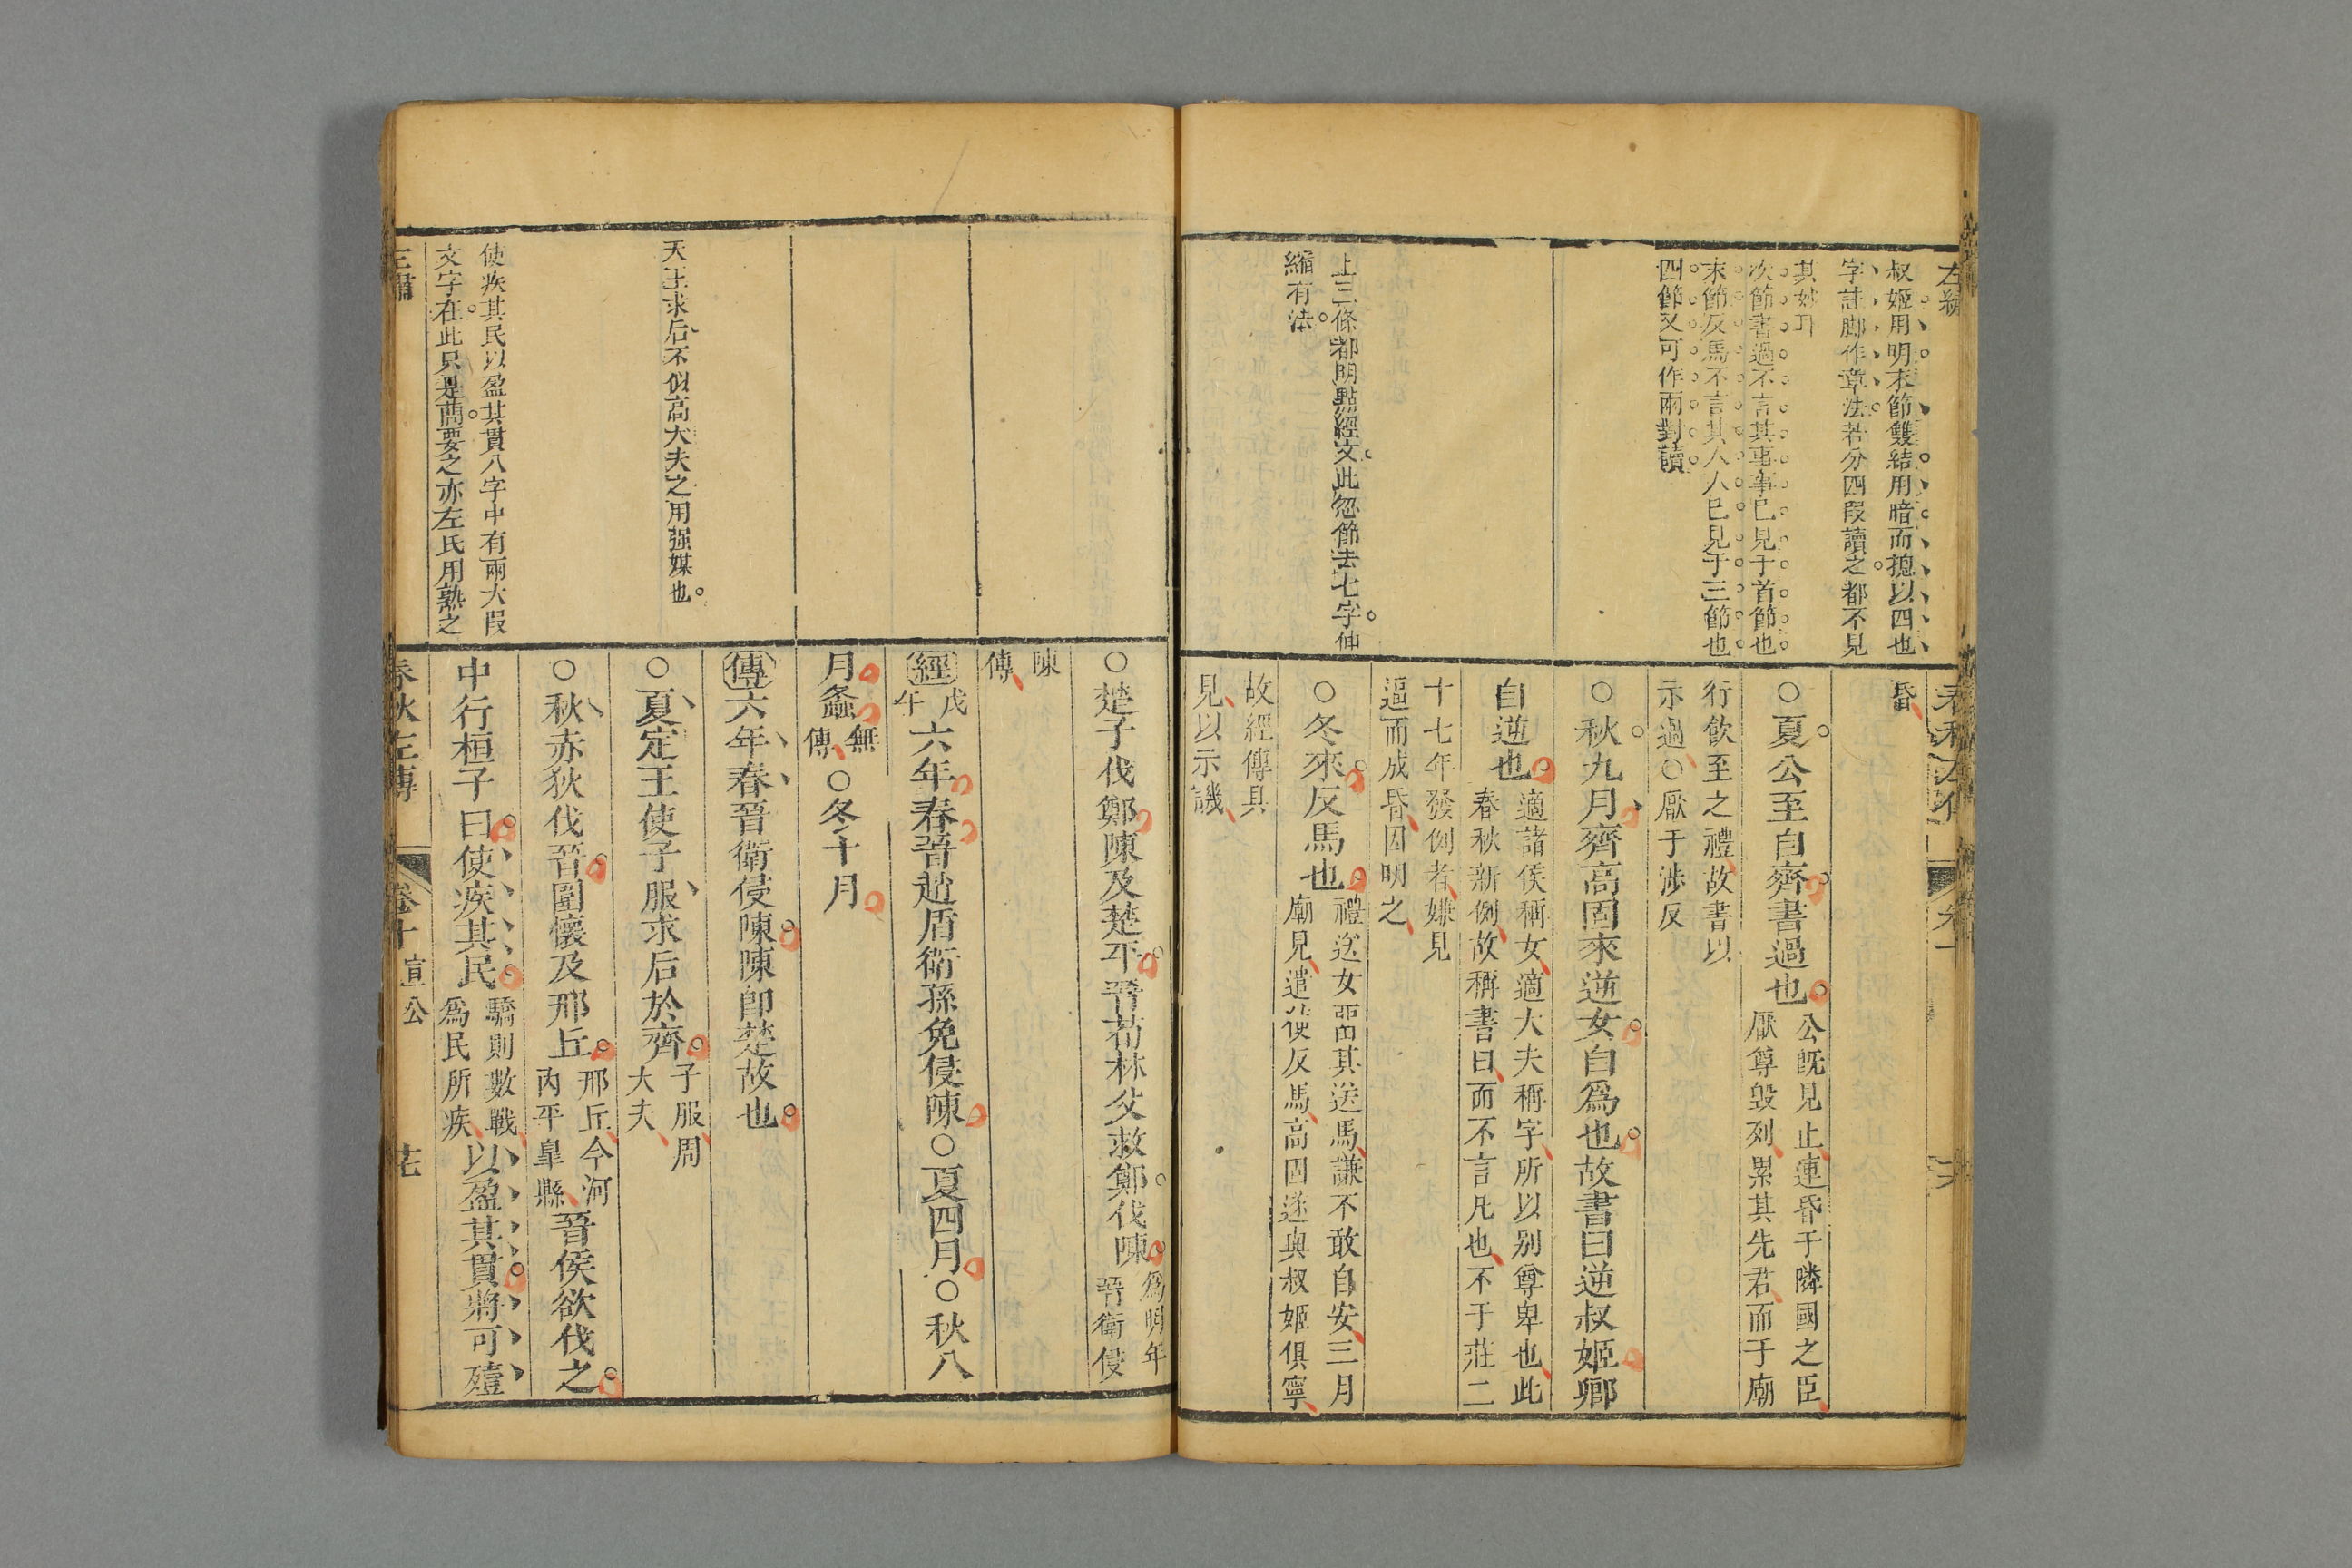 左繡
叔姬用明末節雙結用暗而摠以四也
字註脚作章法若分四段讀之都不見
其妙耳
次節書過不言其事事已見于首節也
末節反馬不言其人人已見于三節也
四節又可作兩對讀
上三條都明點經文此忽節去七字伸
縮有法
春秋左傳
昏
○夏公至自齊書過也公旣見止連昏于隣國之臣
厭尊毀列累其先君而于廟
行飲至之禮故書以
示過○厭于涉反
○秋九月齊高固來逆女自爲也故書曰逆叔姬卿
自逆也適諸侯稱女適大夫稱字所以别尊卑也此
春秋新例故稱書曰而不言凡也不于莊二
十七年發例者嫌見
逼而成昏因明之
○冬來反馬也禮送女畱其送馬謙不敢自安三月
廟見遣使反馬高固遂與叔姬俱寧
故經傳具
見以示譏
天王求后不似高大夫之用强媒也
使疾其民以盈其貫八字中有兩大段
文字在此只是蕳要之亦左氏用熟之
○楚子伐鄭陳及楚平晉荀林父救鄭伐陳爲明年
晉衛侵
陳
傳
經戊
午六年春晉趙盾衛孫免侵陳○夏四月○秋八
月螽無
傳○冬十月
傳六年春晉衛侵陳陳卽楚故也
○夏定王使子服求后於齊子服周
大夫
○秋赤狄伐晉圍懷及邢丘邢丘今河
內平皐縣晉侯欲伐之
中行桓子曰使疾其民驕則數戰
爲民所疾以盈其貫將可殪
左繡
春秋左傳
卷十宣公